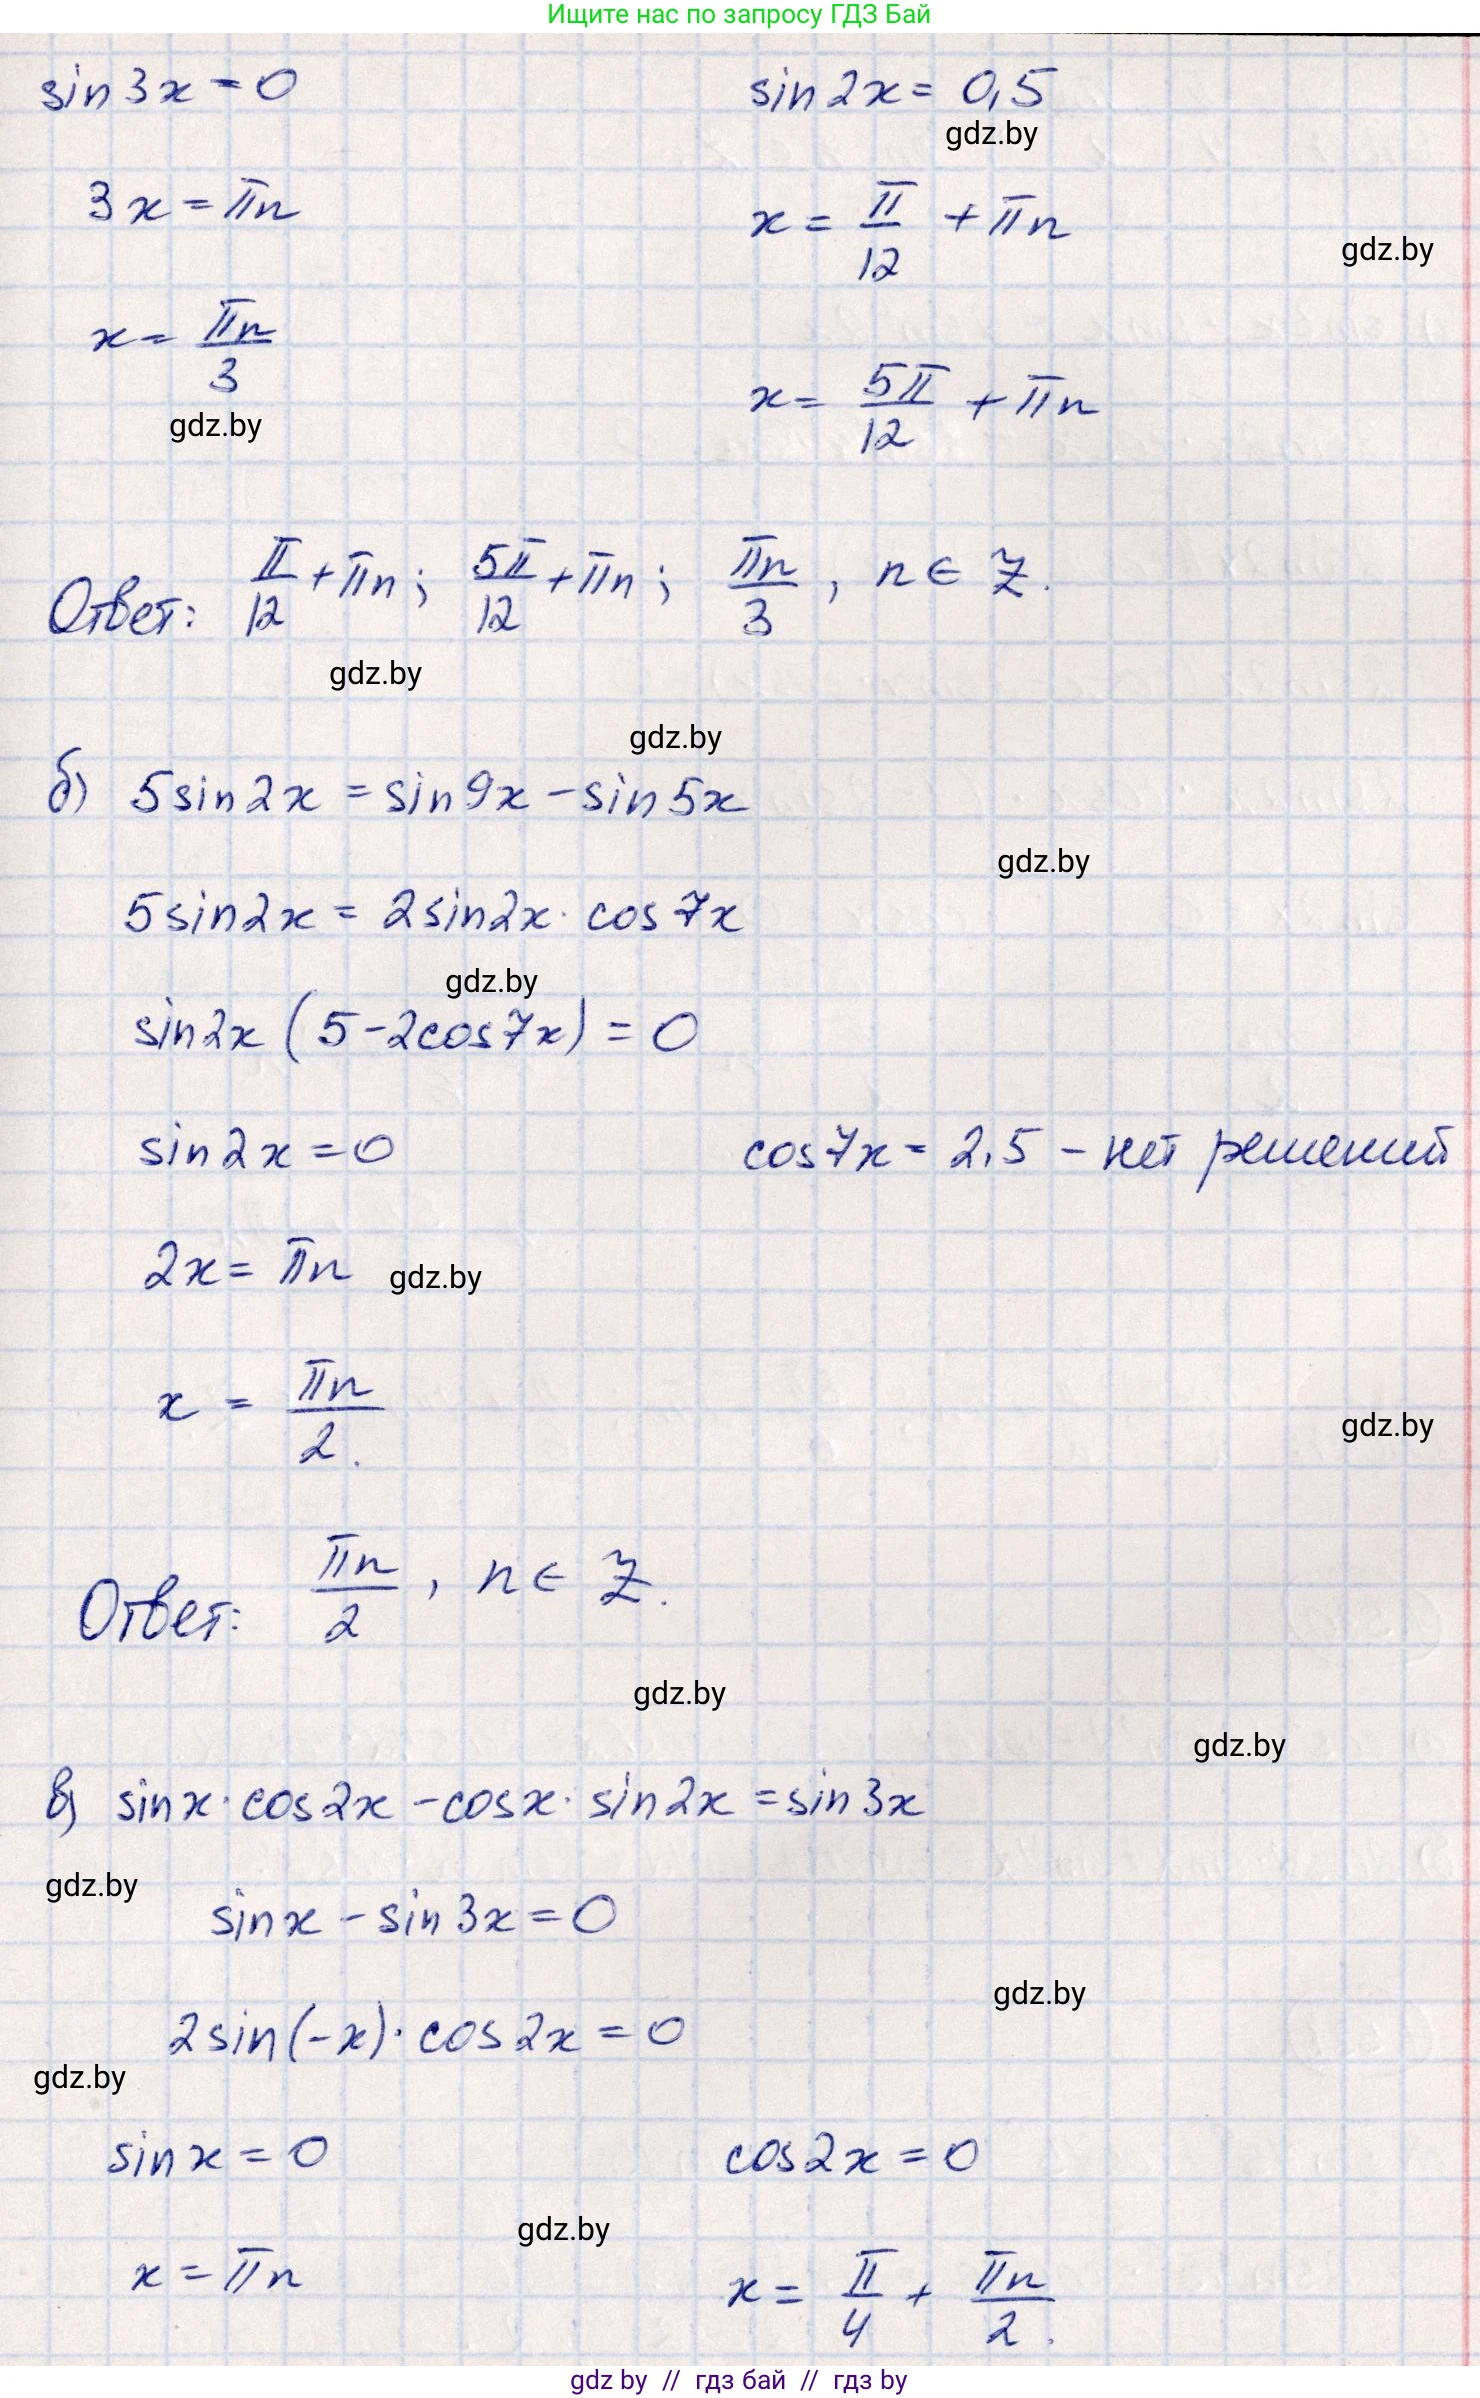 Ищите нас по запросу ГДЗ Бай
sin3x = 0
sin2x = 0,5
gdz.by
3x = πn
x = π/12 + πn
gdz.by
x = πn/3
x = 5π/12 + πn
gdz.by
Ответ: π/12 + πn; 5π/12 + πn; πn/3, n ∈ Z.
gdz.by
gdz.by
б) 5sin2x = sin9x - sin5x
gdz.by
5sin2x = 2sin2x · cos7x
gdz.by
sin2x (5 - 2cos7x) = 0
sin2x = 0
cos7x = 2,5 - нет решений
2x = πn
gdz.by
x = πn/2.
gdz.by
Ответ: πn/2, n ∈ Z.
gdz.by
gdz.by
в) sinx · cos2x - cosx · sin2x = sin3x
gdz.by
sinx - sin3x = 0
gdz.by
2sin(-x) · cos2x = 0
gdz.by
sinx = 0
cos2x = 0
gdz.by
x = πn
x = π/4 + πn/2.
gdz by // гдз бай // гдз by